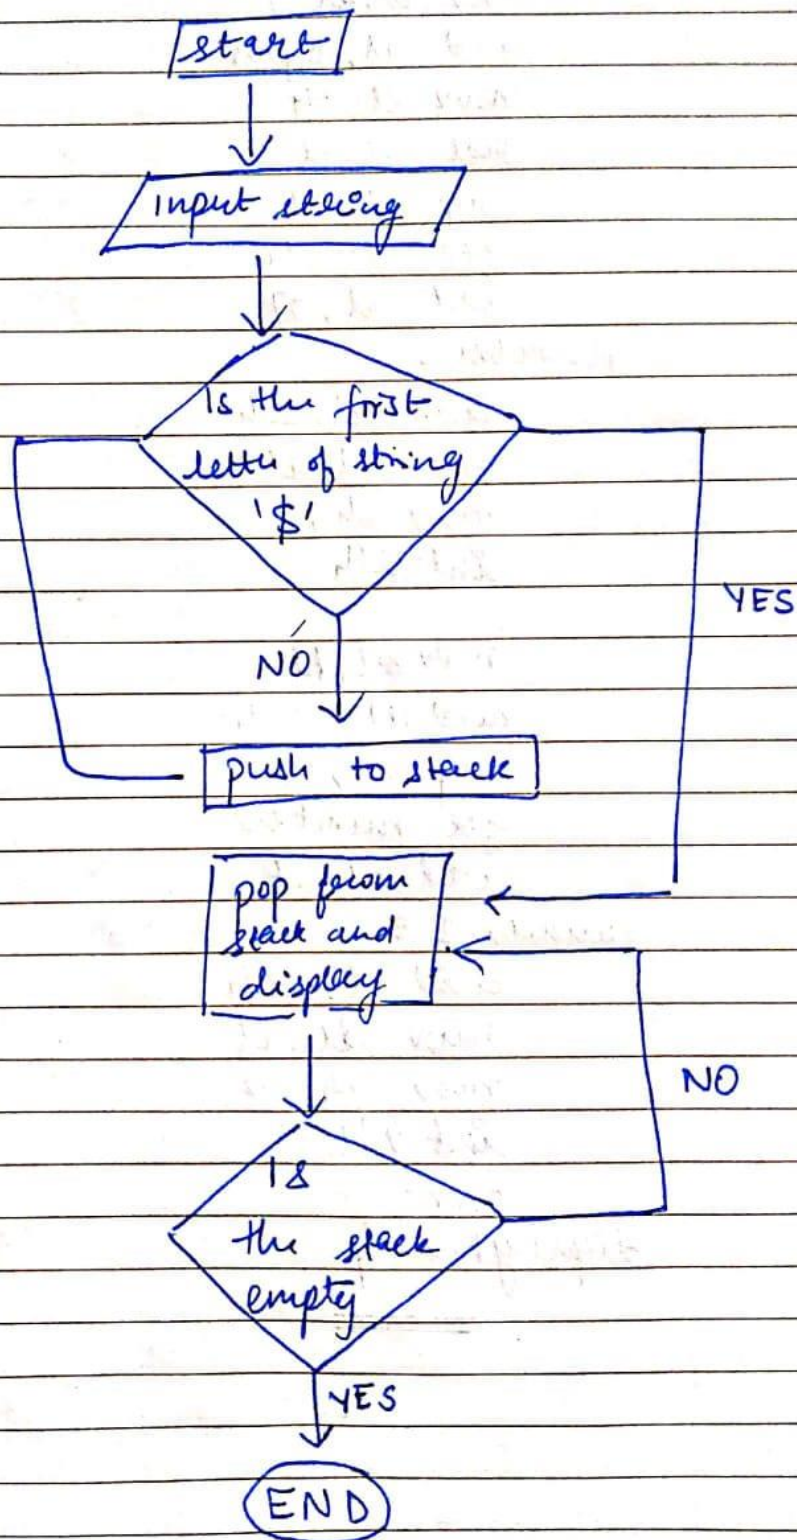 start
input string
Is the first
letter of string
'$'
YES
NO
push to stack
pop from
stack and
display
NO
Is
the stack
empty
YES
END